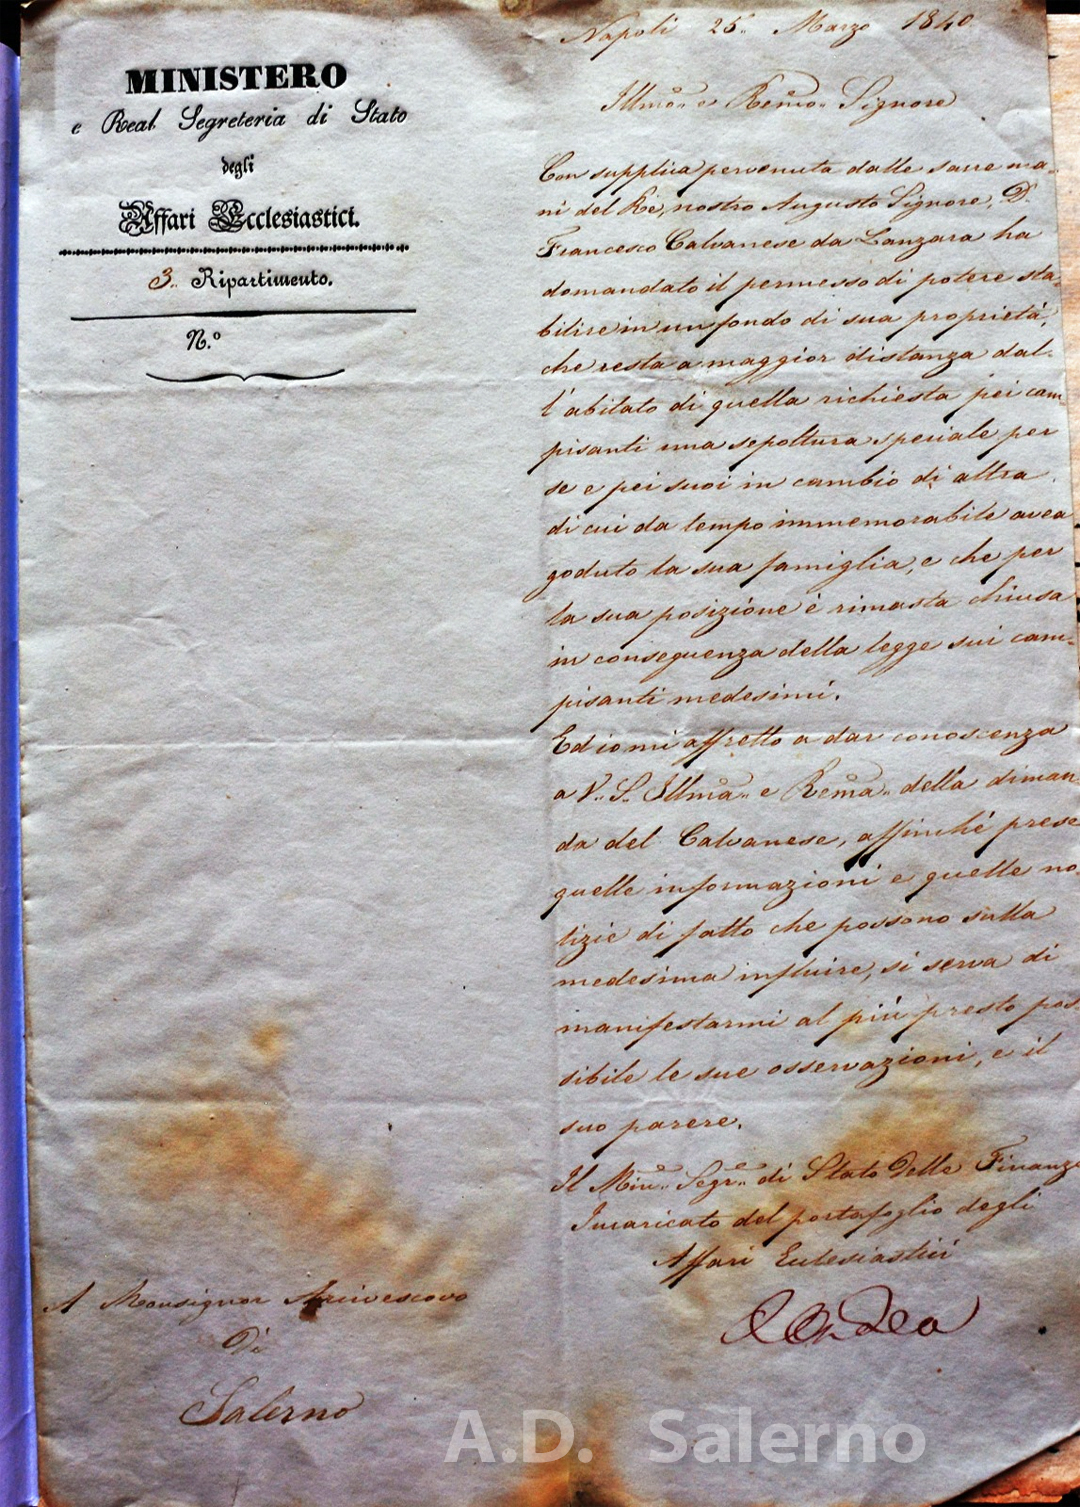 MINISTERO
e Real Segreteria di Stato
degli
Affari Ecclesiastici.
3.. Ripartimento.
N.º
Napoli 25.. Marzo 1840
Illmo.. e Remo.. Signore
Con supplica pervenuta dalle sacre ma-
ni del Re, nostro Augusto Signore, D.
Francesco Calvanese da Lanzara ha
domandato il permesso di potere sta-
bilire in un fondo di sua proprietà,
che resta a maggior distanza dal-
l'abitato di quella richiesta pei cam
pisanti una sepoltura speciale per
se e pei suoi in cambio di altra
di cui da tempo immemorabile avea
goduto la sua famiglia, e che per
la sua posizione è rimasta chiusa
in conseguenza della legge sui cam-
pisanti medesimi.
Ed io mi affretto a dar conoscenza
a V.. S.. Illma.. e Rema.. della diman
da del Calvanese, affinché prese
quelle informazioni e quelle no-
tizie di fatto che possono sulla
medesima influire, si serva di
manifestarmi al più presto pos-
sibile le sue osservazioni, e il
suo parere.
Il Min.. Segr.. di Stato delle Finanze
Incaricato del portafoglio degli
Affari Ecclesiastici
A Monsignor Arcivescovo
Di
Salerno
A.D. Salerno